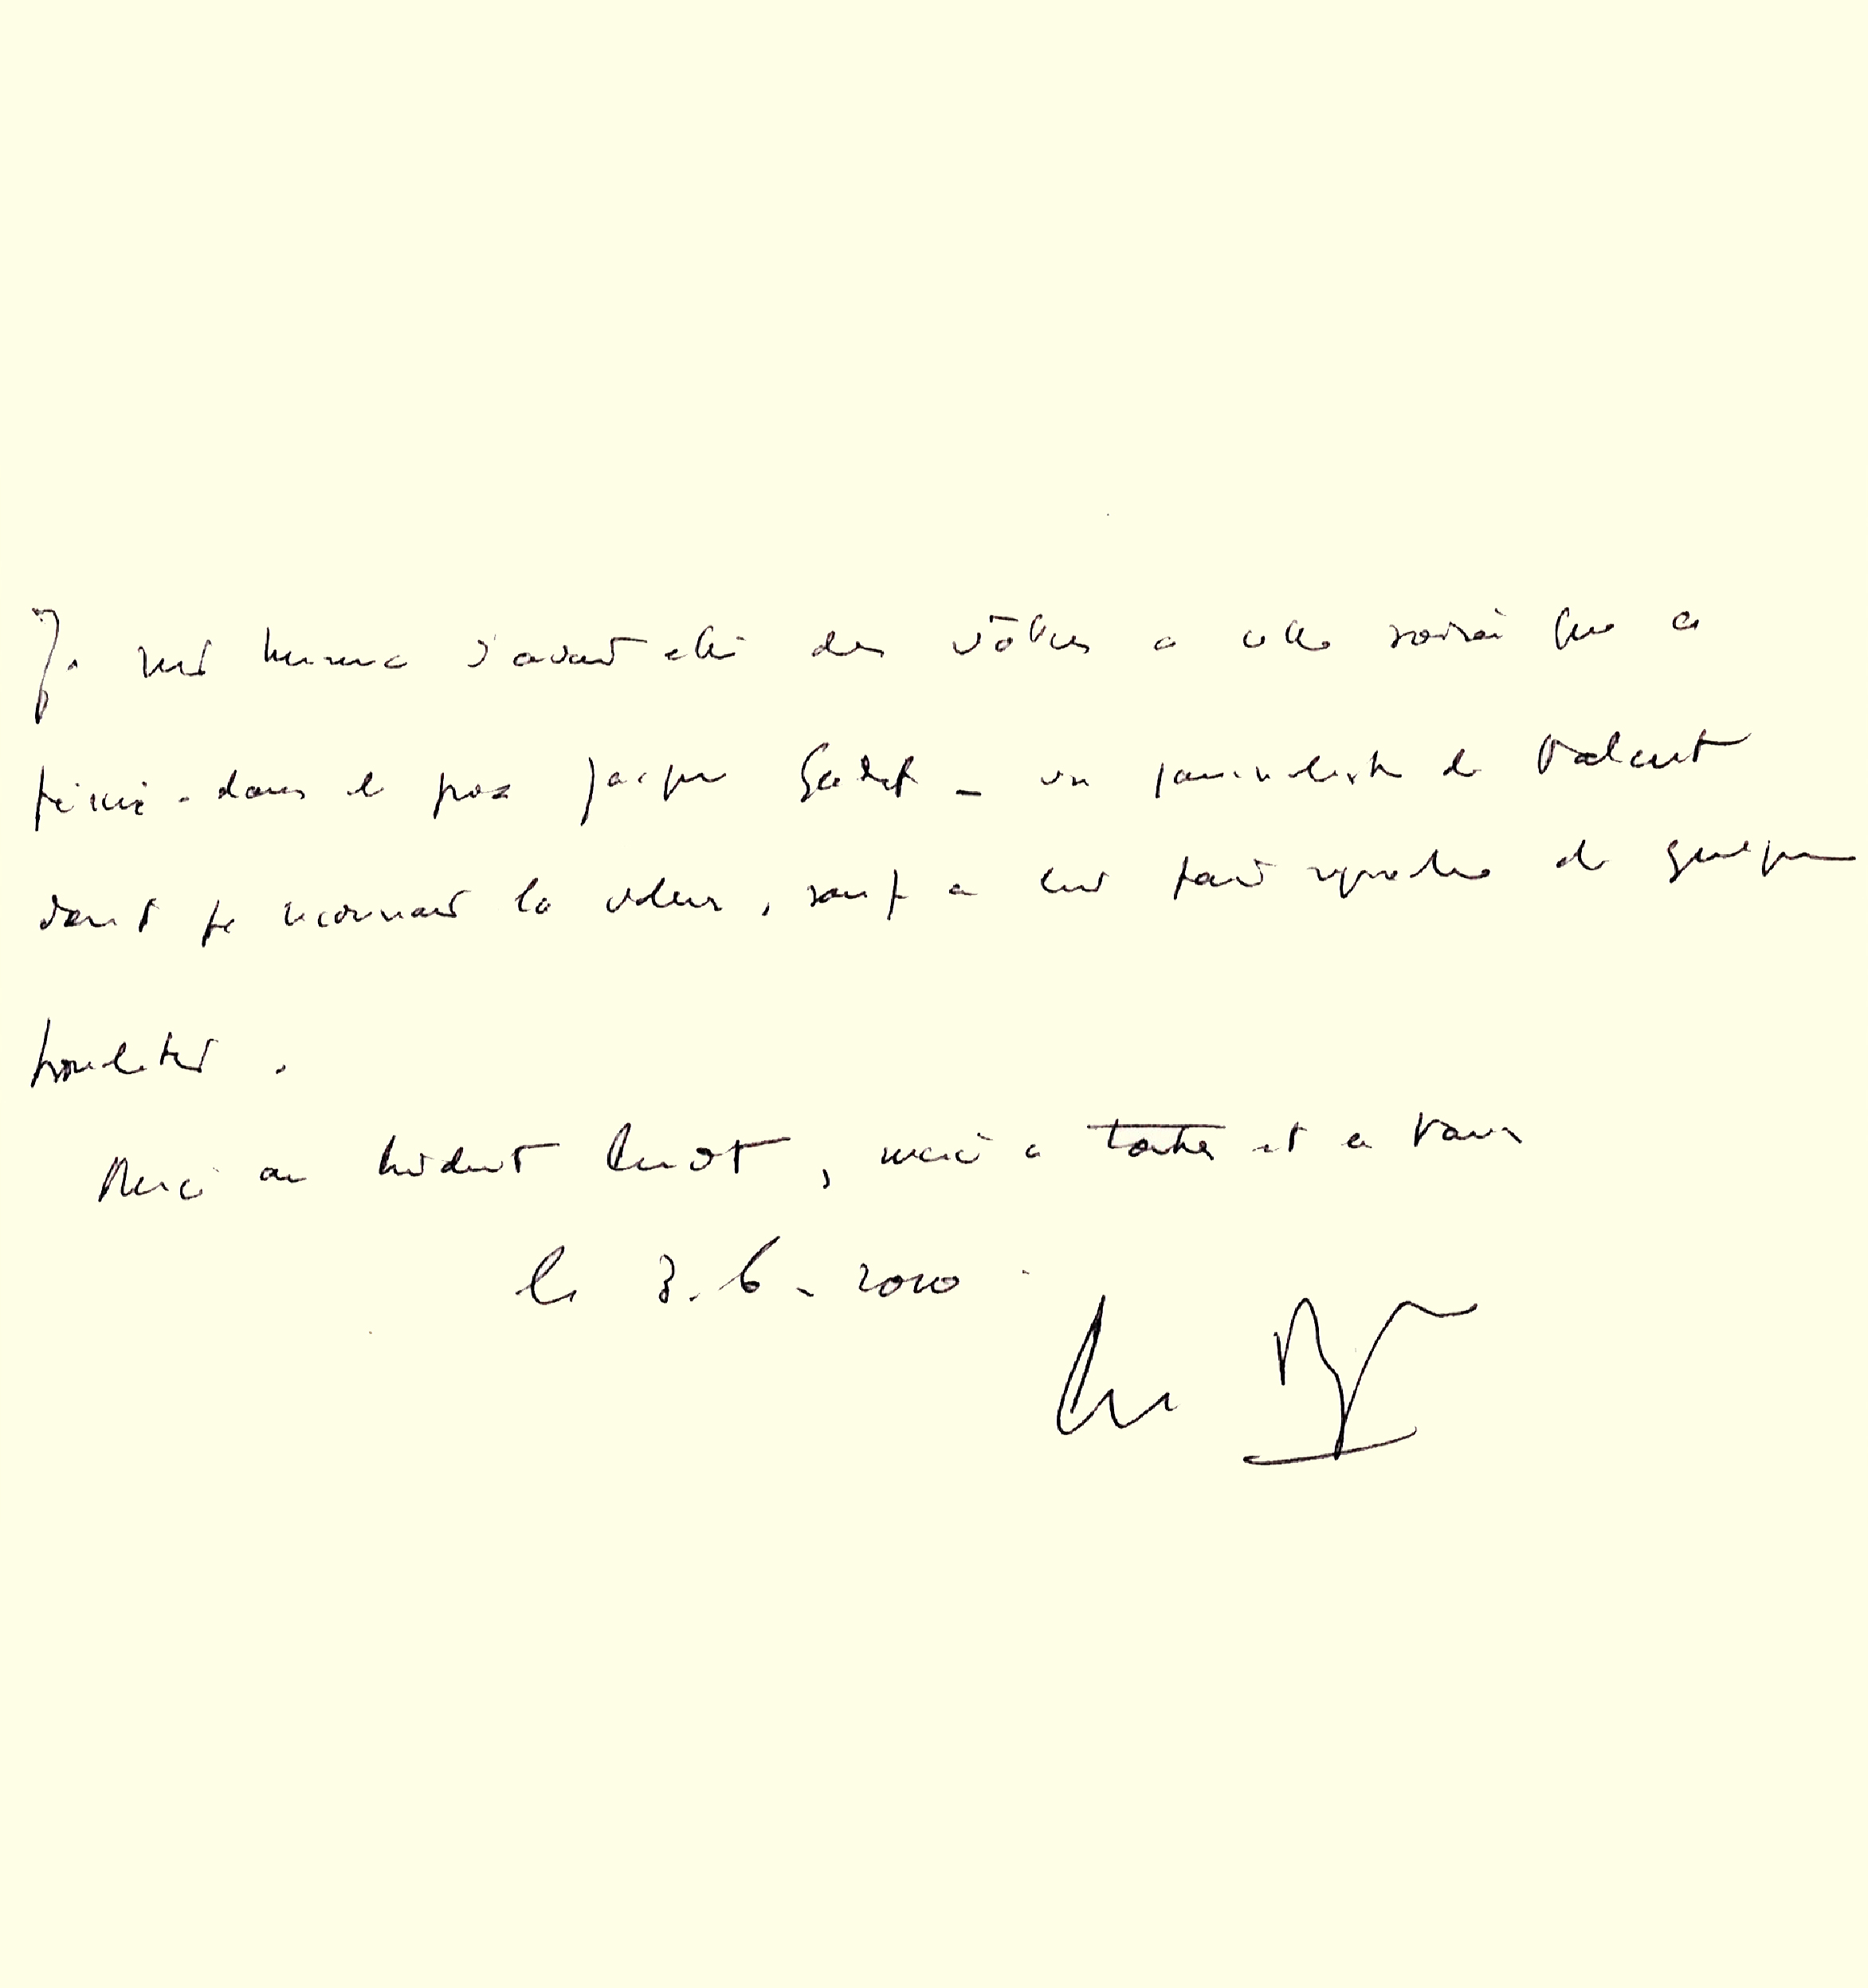 Je suis heureux d'avoir été des vôtres à cette soirée qui a
primé - dans le prix Jacques Goddet - un journaliste de talent
dont je reconnais la valeur, sauf à lui faire reproche de quelques
Merci au Président, merci à toutes et à tous
le 3.6.2010